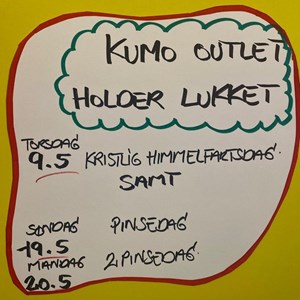 KUMO OUTLET
HOLDER LUKKET
TORSDAG
9.5 KRISTLIG HIMMELFARTSDAG.
SAMT
SØNDAG PINSEDAG
19.5
MANDAG 2 PINSEDAG.
20.5